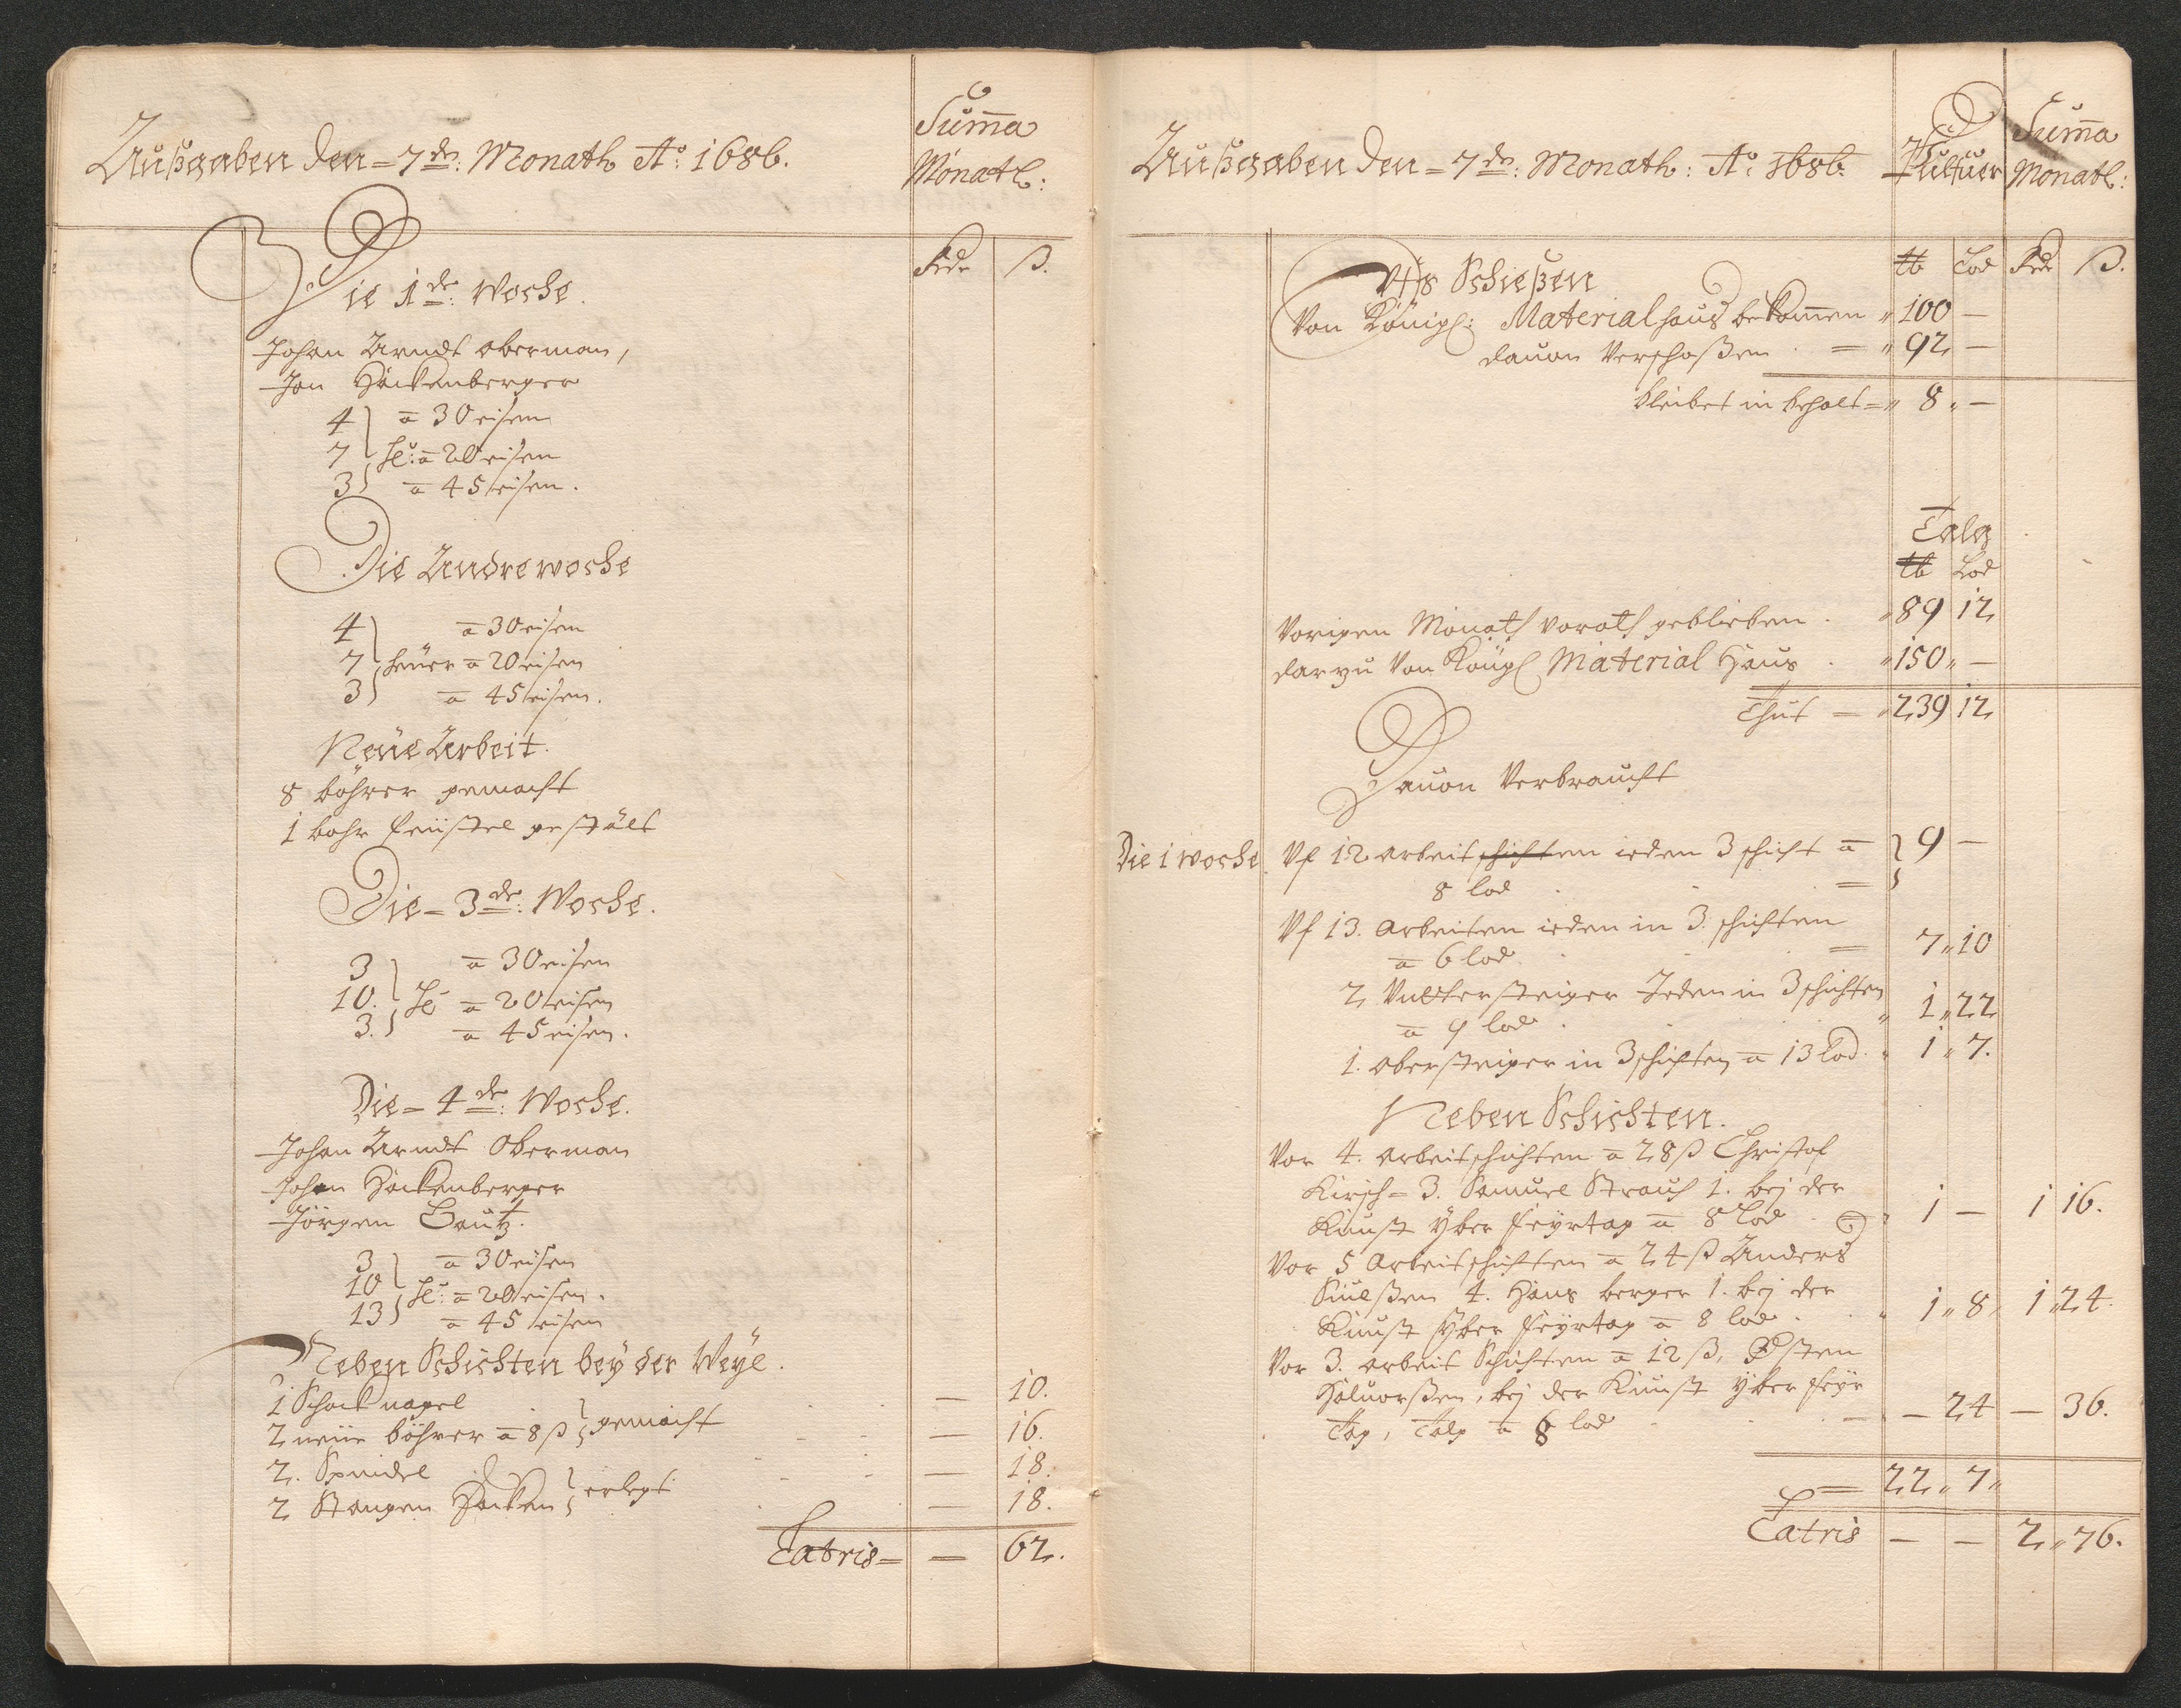 Außgaben den = 7de: Monath Ao: 1686.
Summa
Monatl:
Rdr ß.
Die 1de: Woche.
Johan Arndt oberman,
Jon Häckenberger
4 a 30 eisen
7 He: a 20 eisen
3 a 45 eisen.
Die Andre woche
4 a 30 eisen
7 heüer a 20 eisen
3 a 45 eisen.
Neüe Arbeit.
8 böhrer gemacht
1 bohr feüstel gestält
Die = 3de: Woche.
3 a 30 eisen
10. He a 20 eisen
3. a 45 eisen.
Die = 4de: Woche.
Johan Arndt Oberman
Johan Häckenberger
Jörgen Lautz.
3 a 30 eisen
10 He: a 20 eisen.
13 a 45 eisen
Neben Schichten bey der Weyl.
1 Schock nagel — 10.
2 neüe böhrer a 8 ß gemacht — 16.
2. Spindel — 18.
2 Stangen Hacken erlegt — 18.
Latris = — 62.
Außgaben den = 7de: Monath: Ao: 1686.
Pulfuer
Summa
Monatl:
Schießen
tb Lod Rdr ß.
Von Königl: Materialhaus bekommen " 100 —
dauon Verschoßen = " 92 —
bleibet in behalt = " 8 " —
Talg
tb Lod
Vorigen Monath vorath geblieben. " 89 12
darzu Von Königl Material Haus. " 150 " —
Thut = " 239 12
Dauon Verbraucht
Die 1 woche. Vf 12 arbeitschichten ieden 3 schicht a 9 —
8 lod =
Vf 13. Arbeiten ieden in 3. schichten
a 6 lod = 7 " 10
2 Vntersteiger Jeden in 3 schichten
a 9 lod " 1 " 22
1. Obersteiger in 3 schichten a 13 Lod. " 1 " 7.
Neben Schichten.
Vor 4. arbeitschichten a 28 ß Christof
Kirsch = 3. Samuel Strauch 1. bej der
Kunst yber feyrtag a 8 Lod = 1 — 1 16.
Vor 5 Arbeitschichten a 24 ß Anders
4. Hans berger 1. bej der
Kunst yber feyrtag a 8 lod. " 1 " 8 " 1 " 24.
Vor 3. arbeit Schichten a 12 ß, Østen
Haluorßen, bej der Kunst yber feyr
Tag, Talg a 8 lod — — 24 — 36.
= 22 " 7 "
Latris — — 2 " 76.